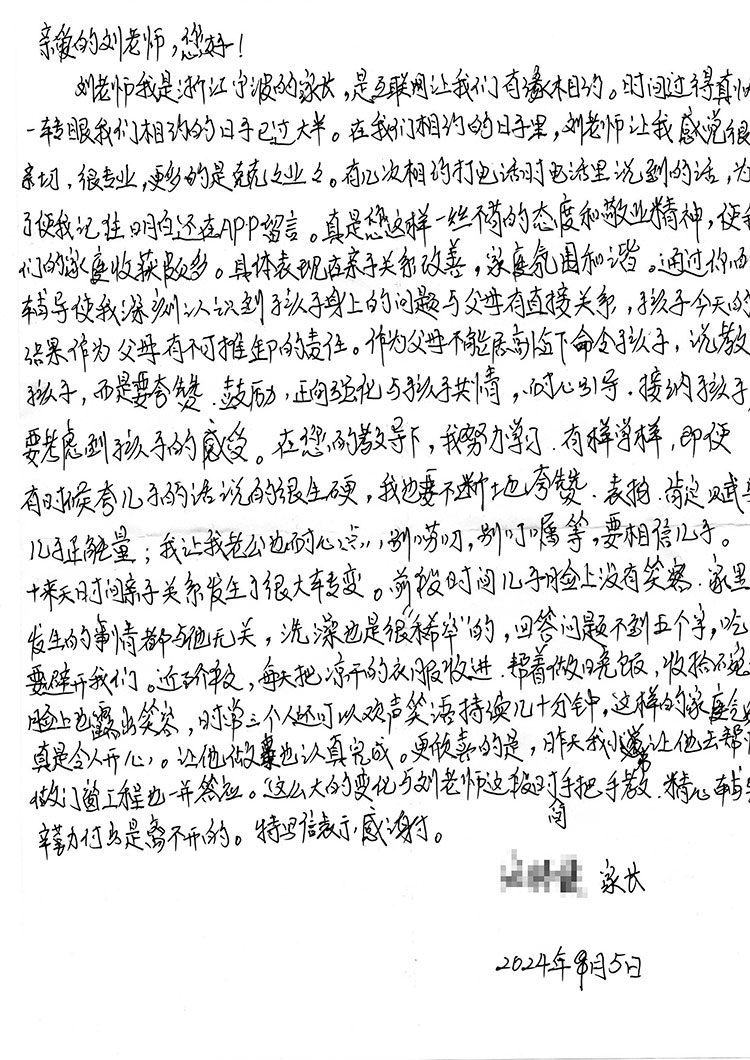 亲爱的刘老师，您好！
刘老师我是浙江宁波的家长，是互联网让我们有缘相约。时间过得真快
一转眼我们相约的日子已过大半。在我们相约的日子里，刘老师让我感觉很
亲切，很专业，更多的是兢兢业业。有几次相约打电话时电话里说到的话，为
了使我记住明白还在APP留言。真是您这样一丝不苟的态度和敬业精神，使我
们的家庭收获颇多。具体表现在亲子关系改善，家庭氛围和谐。通过你的
辅导使我深刻认识到孩子身上的问题与父母有直接关系，孩子今天的
结果作为父母有不可推卸的责任。作为父母不能居高临下命令孩子，说教
孩子，而是要夸赞、鼓励，正向强化与孩子共情，耐心引导、接纳孩子，
要考虑到孩子的感受。在您的教导下，我努力学习、有样学样，即便
有时候夸儿子的话说的很生硬，我也要不断地夸赞、表扬、肯定赋予
儿子正能量；我让我老公也耐心点，别唠叨，别叮嘱等，要相信儿子。
十来天时间亲子关系发生了很大转变。前段时间儿子脸上没有笑容、家里
发生的事情都与他无关，洗澡也是很“稀罕”的，回答问题不到五个字，吃
要避开我们。近个，每天把凉干的衣服收进、帮着做晚饭，收拾碗
脸上也露出笑容，时常三个人还可以欢声笑语持续几十分钟，这样的家庭气
真是令人开心。让他做也认真完成。更欣喜的是，昨天我让他去帮
做门窗工程也一并答应。这么大的变化与刘老师这段时间手把手教、精心辅导
辛勤付出是离不开的。特写信表示感谢。
家长
2024年月5日